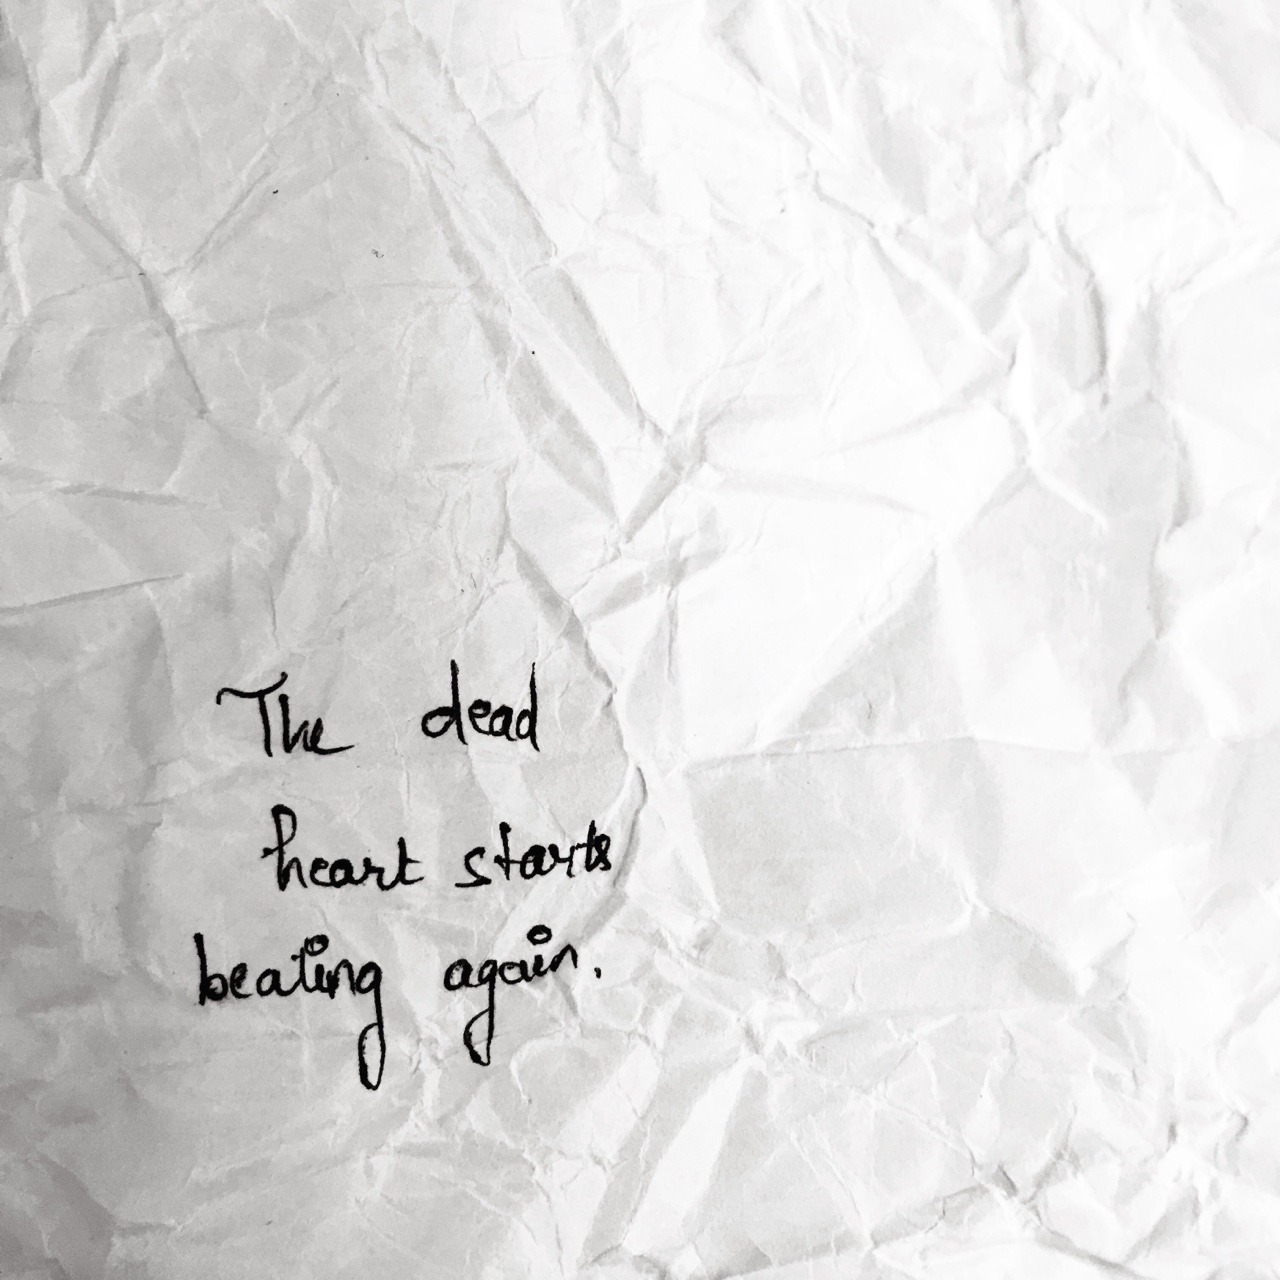 The dead
heart starts
beating again.